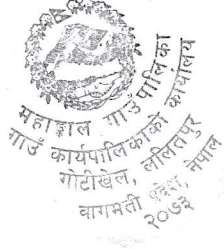 महाङ्काल गाउँपालिका
गाउँ कार्यपालिकाको कार्यालय
गोटीखेल, ललितपुर
वागमती प्रदेश, नेपाल
२०७३